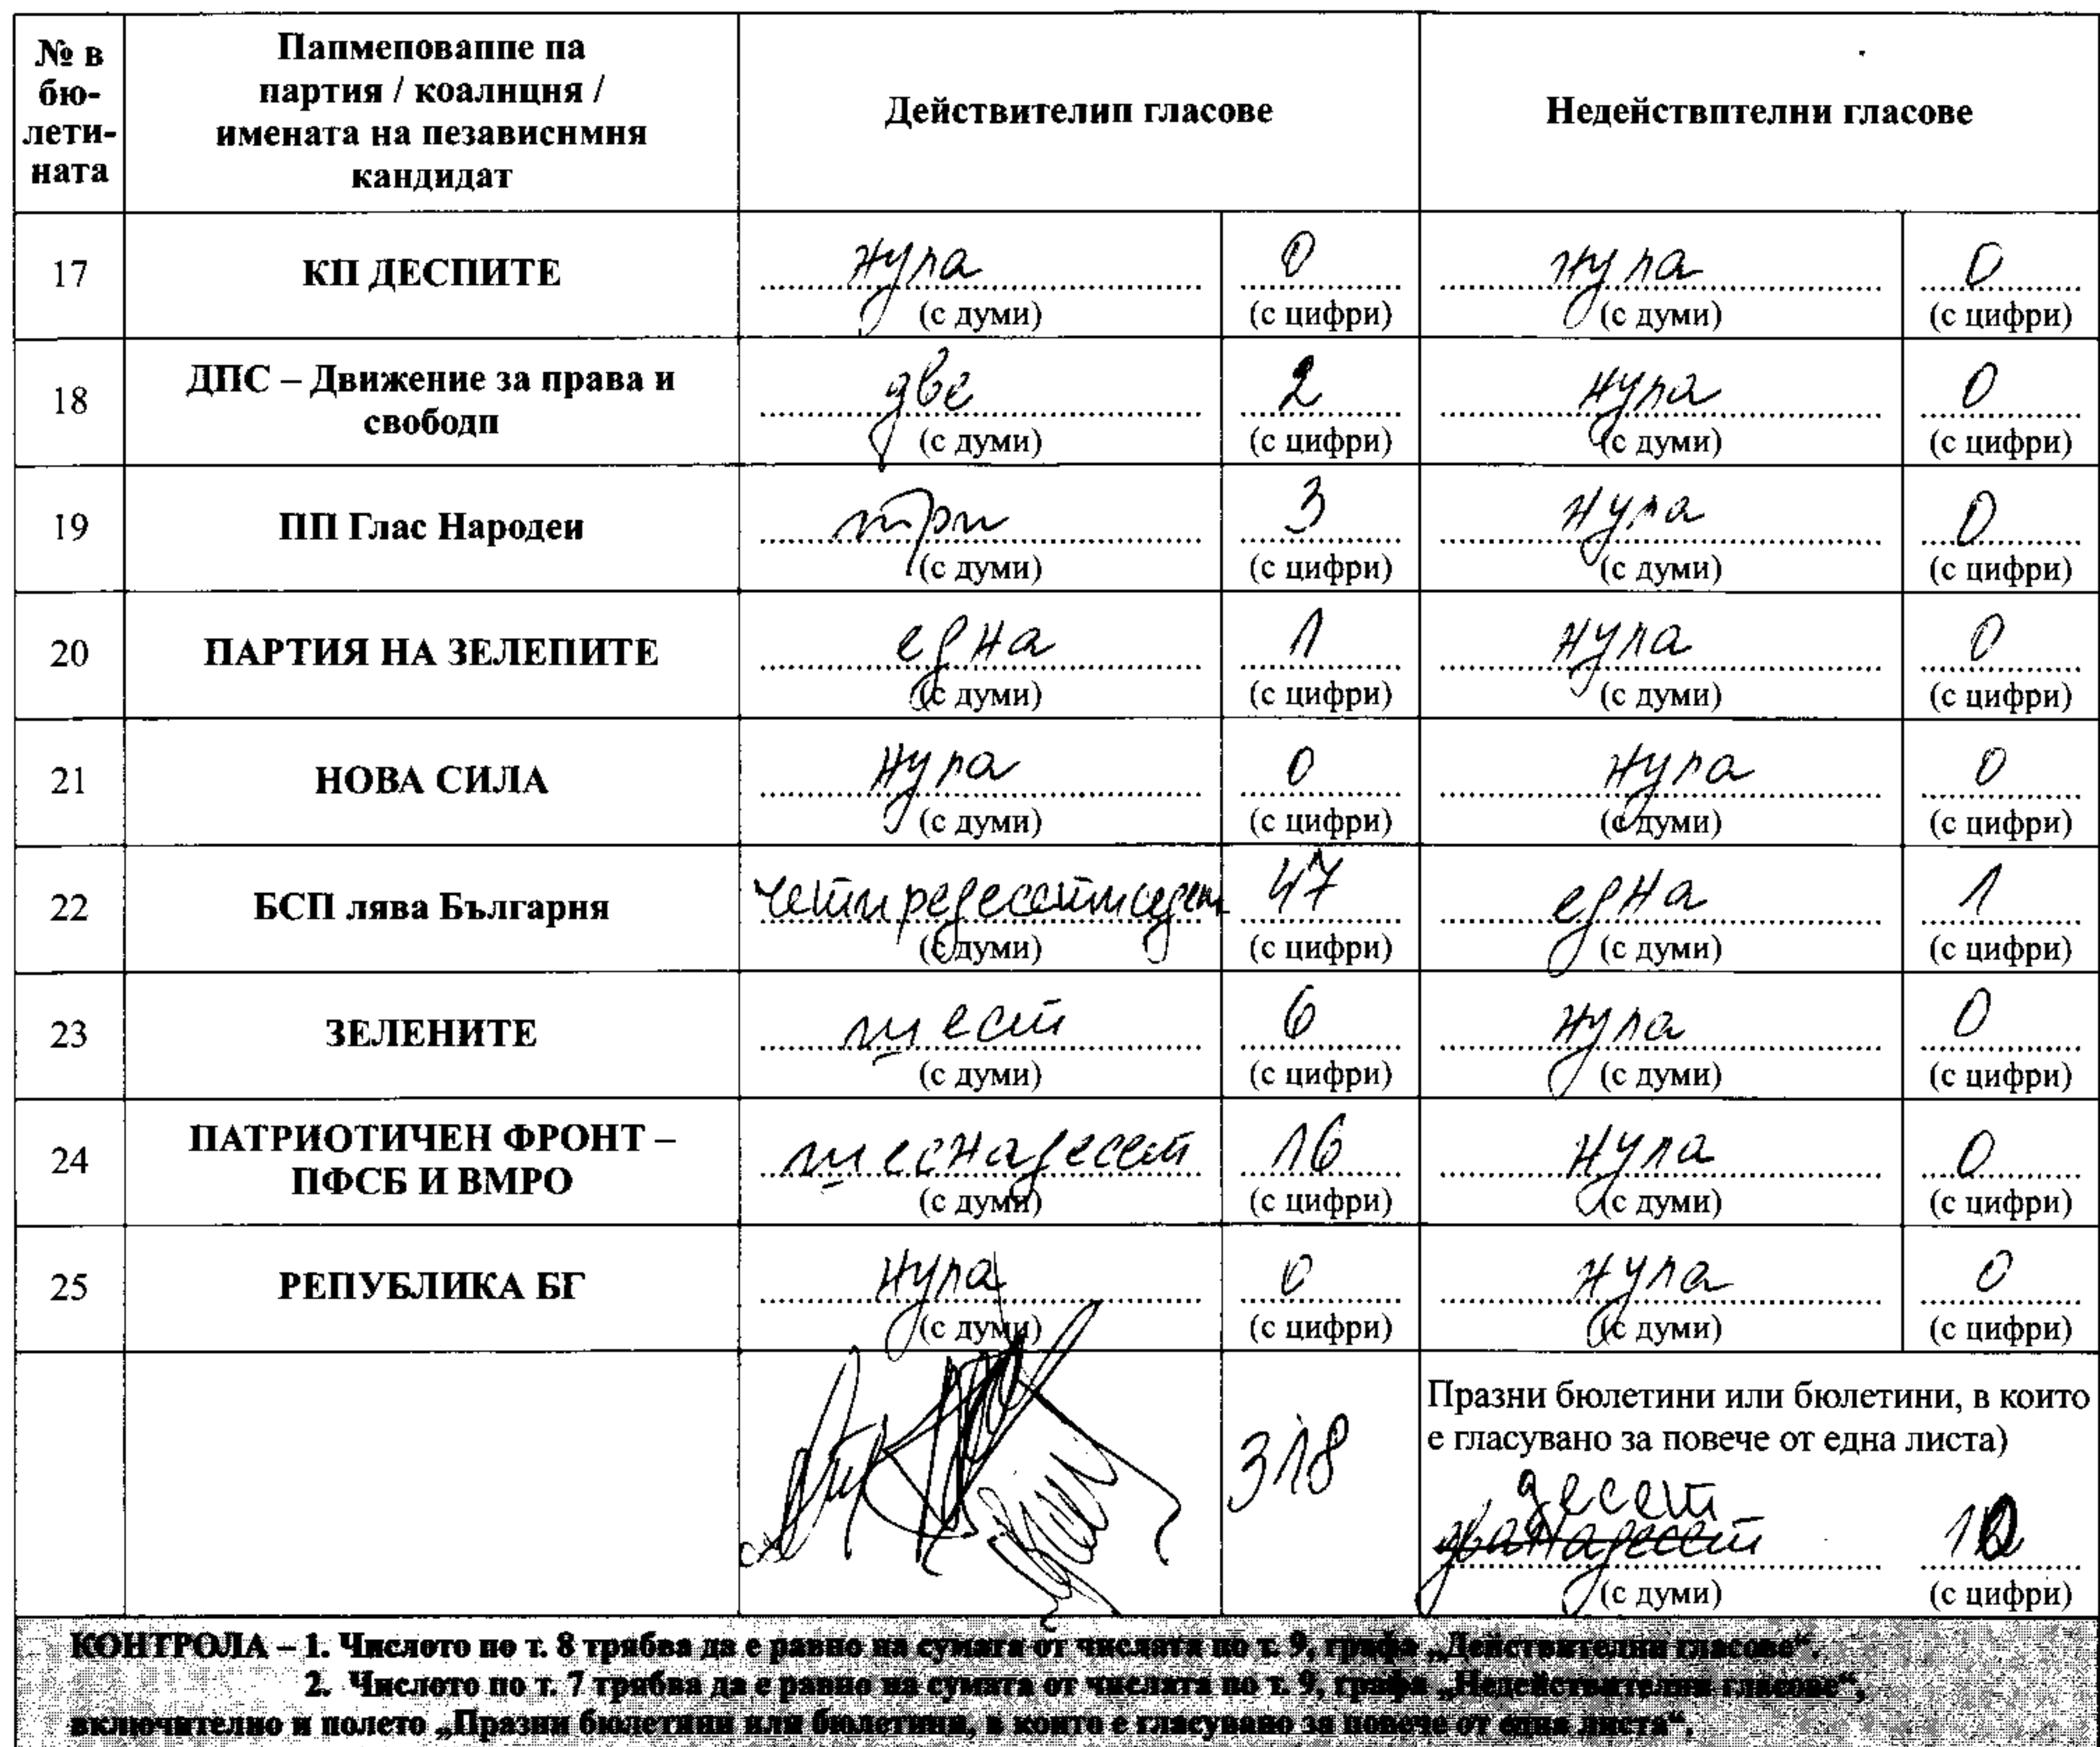 № в бю- лети- ната
Папменоваппе па партия / коалнцня / имената на пезависнмня кандидат
Действителип гласове
Недействптелни гласове
17 КП ДЕСПИТЕ нула 0 нула 0
(с думи) (с цифри) (с думи) (с цифри)
18 ДПС – Движение за права и свободп две 2 нула 0
(с думи) (с цифри) (с думи) (с цифри)
19 ПП Глас Народеи три 3 нула 0
(с думи) (с цифри) (с думи) (с цифри)
20 ПАРТИЯ НА ЗЕЛЕПИТЕ една 1 нула 0
(с думи) (с цифри) (с думи) (с цифри)
21 НОВА СИЛА нула 0 нула 0
(с думи) (с цифри) (с думи) (с цифри)
22 БСП лява Българня четиредесетиседем 47 една 1
(с думи) (с цифри) (с думи) (с цифри)
23 ЗЕЛЕНИТЕ шест 6 нула 0
(с думи) (с цифри) (с думи) (с цифри)
24 ПАТРИОТИЧЕН ФРОНТ – ПФСБ И ВМРО шеснадесет 16 нула 0
(с думи) (с цифри) (с думи) (с цифри)
25 РЕПУБЛИКА БГ нула 0 нула 0
(с думи) (с цифри) (с думи) (с цифри)
Празни бюлетини или бюлетини, в които
е гласувано за повече от една листа)
318
десет
дванадесет 10
(с думи) (с цифри)
КОНТРОЛА – 1. Числото по т. 8 трябва да е равно на сумата от числата по т. 9, графа „Действителни гласове“.
2. Числото по т. 7 трябва да е равно на сумата от числата по т. 9, графа „Недействителни гласове“,
включително и полето „Празни бюлетини или бюлетини, в които е гласувано за повече от една листа“.